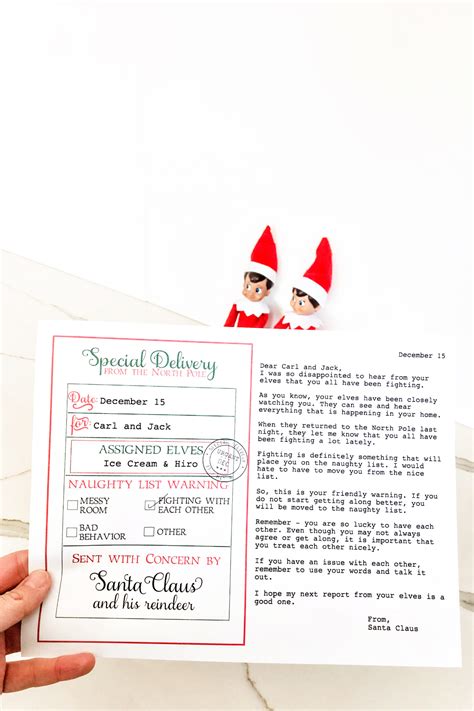 Special Delivery
FROM THE NORTH POLE
Date: December 15
for: Carl and Jack
ASSIGNED ELVES
Ice Cream & Hiro
URGENT
NAUGHTY LIST WARNING
MESSY ROOM
FIGHTING WITH EACH OTHER
BAD BEHAVIOR
OTHER
SENT WITH CONCERN BY
Santa Claus
and his reindeer
December 15
Dear Carl and Jack,
I was so disappointed to hear from your
elves that you all have been fighting.
As you know, your elves have been closely
watching you. They can see and hear
everything that is happening in your home.
When they returned to the North Pole last
night, they let me know that you all have
been fighting a lot lately.
Fighting is definitely something that will
place you on the naughty list. I would
hate to have to move you from the nice
list.
So, this is your friendly warning. If you
do not start getting along better, you
will be moved to the naughty list.
Remember - you are so lucky to have each
other. Even though you may not always
agree or get along, it is important that
you treat each other nicely.
If you have an issue with each other,
remember to use your words and talk it
out.
I hope my next report from your elves is a
good one.
From,
Santa Claus